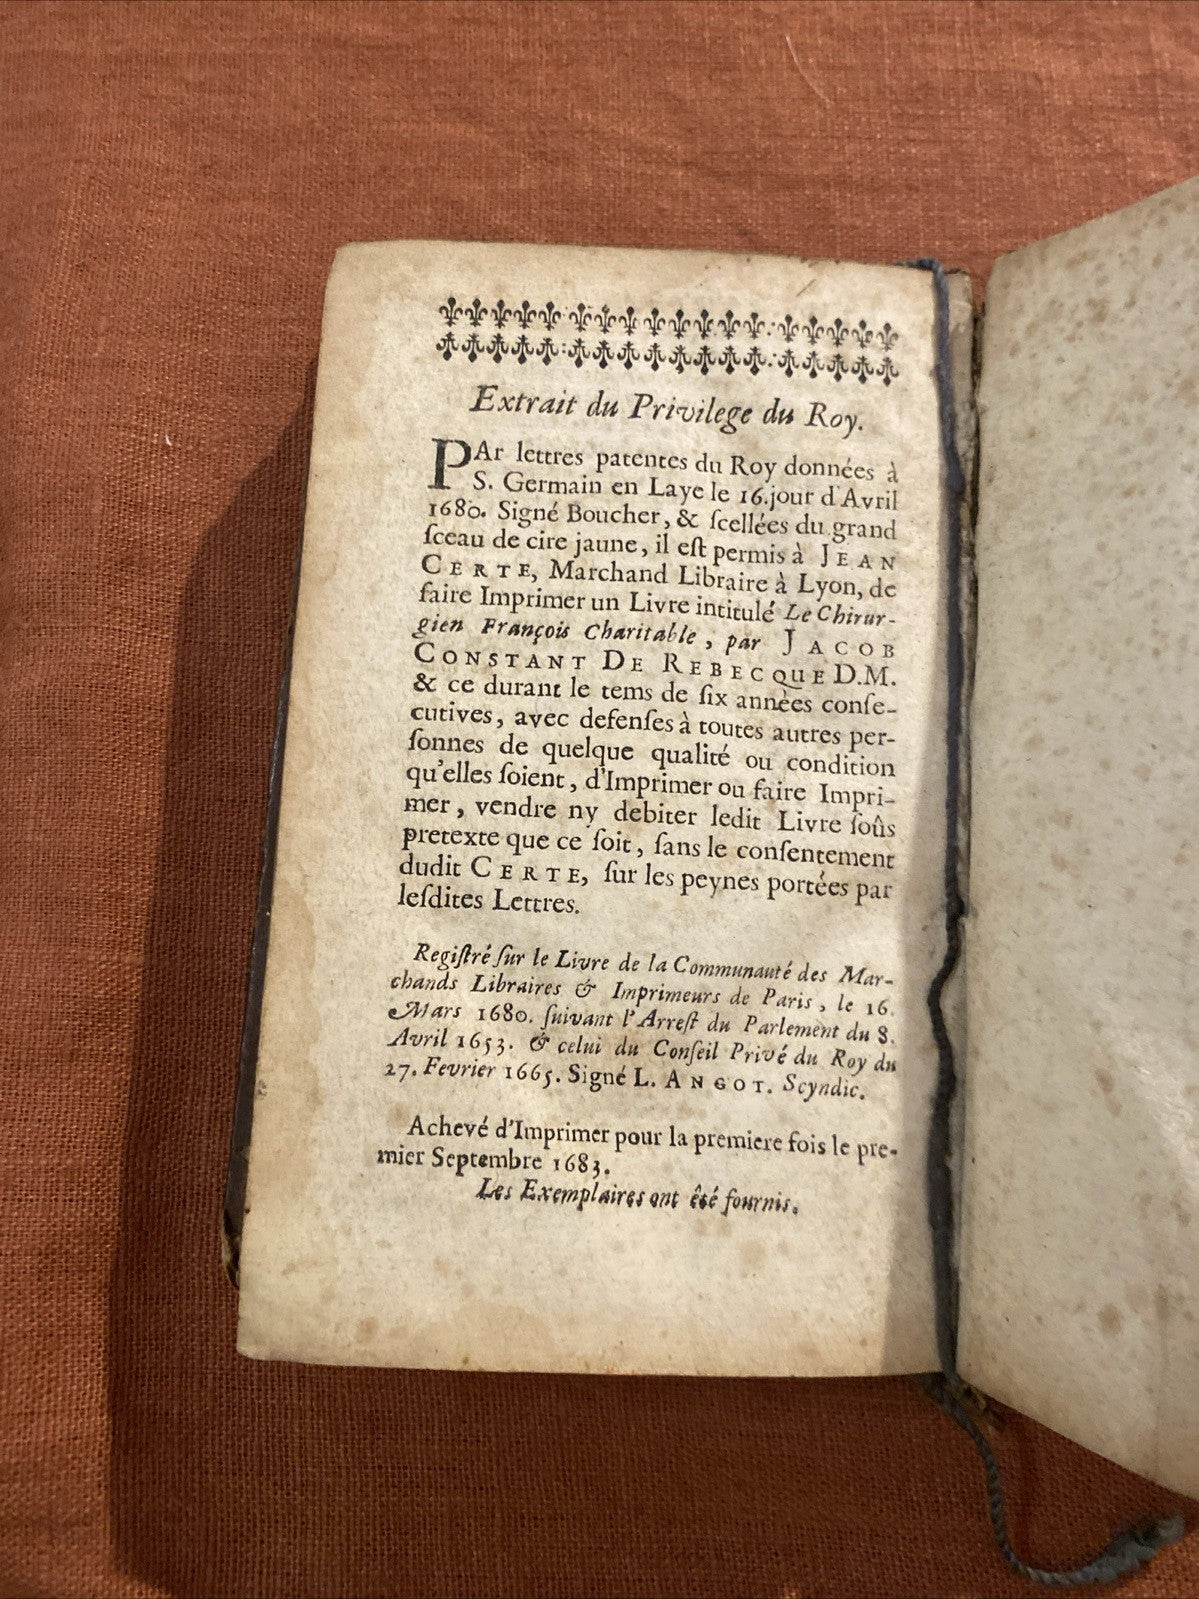 Extrait du Privilege du Roy.
PAr lettres patentes du Roy données à
S. Germain en Laye le 16. jour d'Avril
1680. Signé Boucher, & ſcellées du grand
ſceau de cire jaune, il eſt permis à JEAN
CERTE, Marchand Libraire à Lyon, de
faire Imprimer un Livre intitulé Le Chirur-
gien François Charitable, par JACOB
CONSTANT DE REBECQUE D.M.
& ce durant le tems de ſix années conſe-
cutives, avec defenſes à toutes autres per-
ſonnes de quelque qualité ou condition
qu'elles ſoient, d'Imprimer ou faire Impri-
mer, vendre ny debiter ledit Livre ſoûs
pretexte que ce ſoit, ſans le conſentement
dudit CERTE, ſur les peynes portées par
leſdites Lettres.
Regiſtré ſur le Livre de la Communauté des Mar-
chands Libraires & Imprimeurs de Paris, le 16.
Mars 1680. ſuivant l'Arreſt du Parlement du 8.
Avril 1653. & celui du Conſeil Privé du Roy du
27. Fevrier 1665. Signé L. ANGOT. Scyndic.
Achevé d'Imprimer pour la premiere fois le pre-
mier Septembre 1683.
Les Exemplaires ont êté fournis.